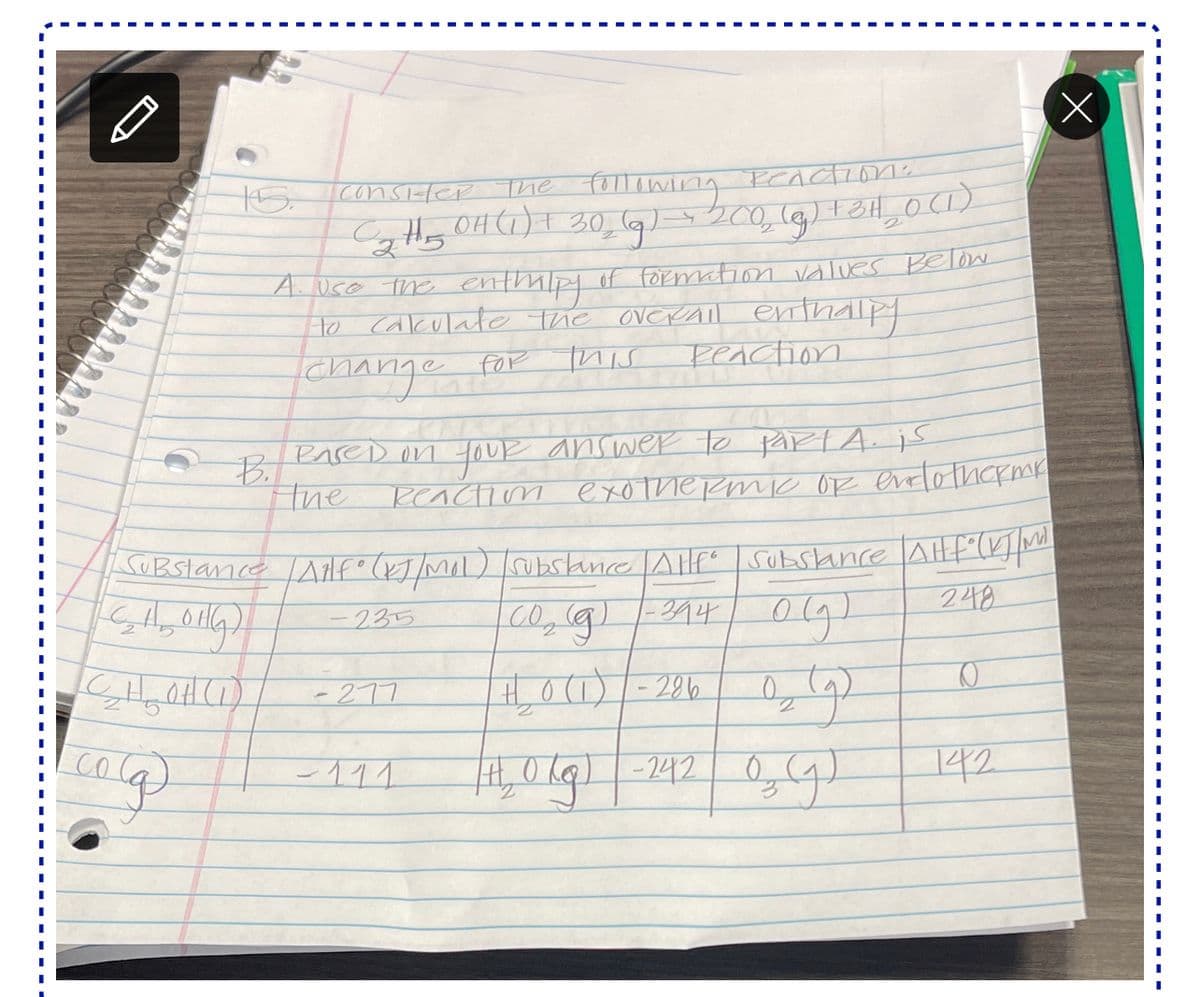 15. Consider the following Reaction:
C₂H₅OH(l) + 3O₂(g) → 2CO₂(g) + 3H₂O(l)
A. Use the enthalpy of formation values Below
to calculate the overall enthalpy
change for this Reaction
B. Based on your answer to part A. is
the Reaction exothermic or endothermic
SuBstance ΔHf°(kJ/mol) substance ΔHf° Substance ΔHf°(kJ/mol
C₂H₅OH(g) -235 CO₂(g) -394 O(g) 248
C₂H₅OH(l) -277 H₂O(l) -286 O₂(g) 0
CO(g) -111 H₂O(g) -242 O₃(g) 142